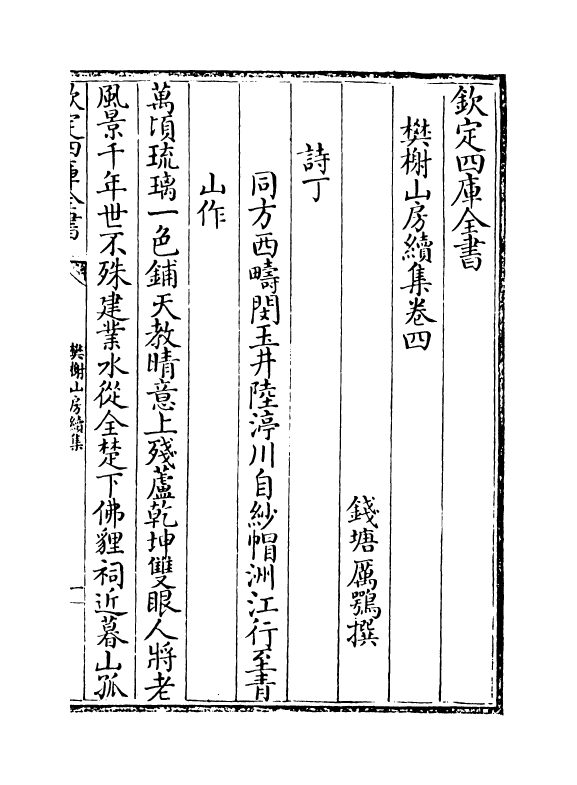 欽定四庫全書
樊榭山房續集卷四
錢塘厲鶚撰
詩丁
同方西疇閔玉井陸渟川自紗帽洲江行至青
山作
萬頃琉璃一色鋪天教晴意上殘蘆乾坤雙眼人將老
風景千年世不殊建業水從全楚下佛貍祠近暮山孤
欽定四庫全書
樊榭山房續集
一